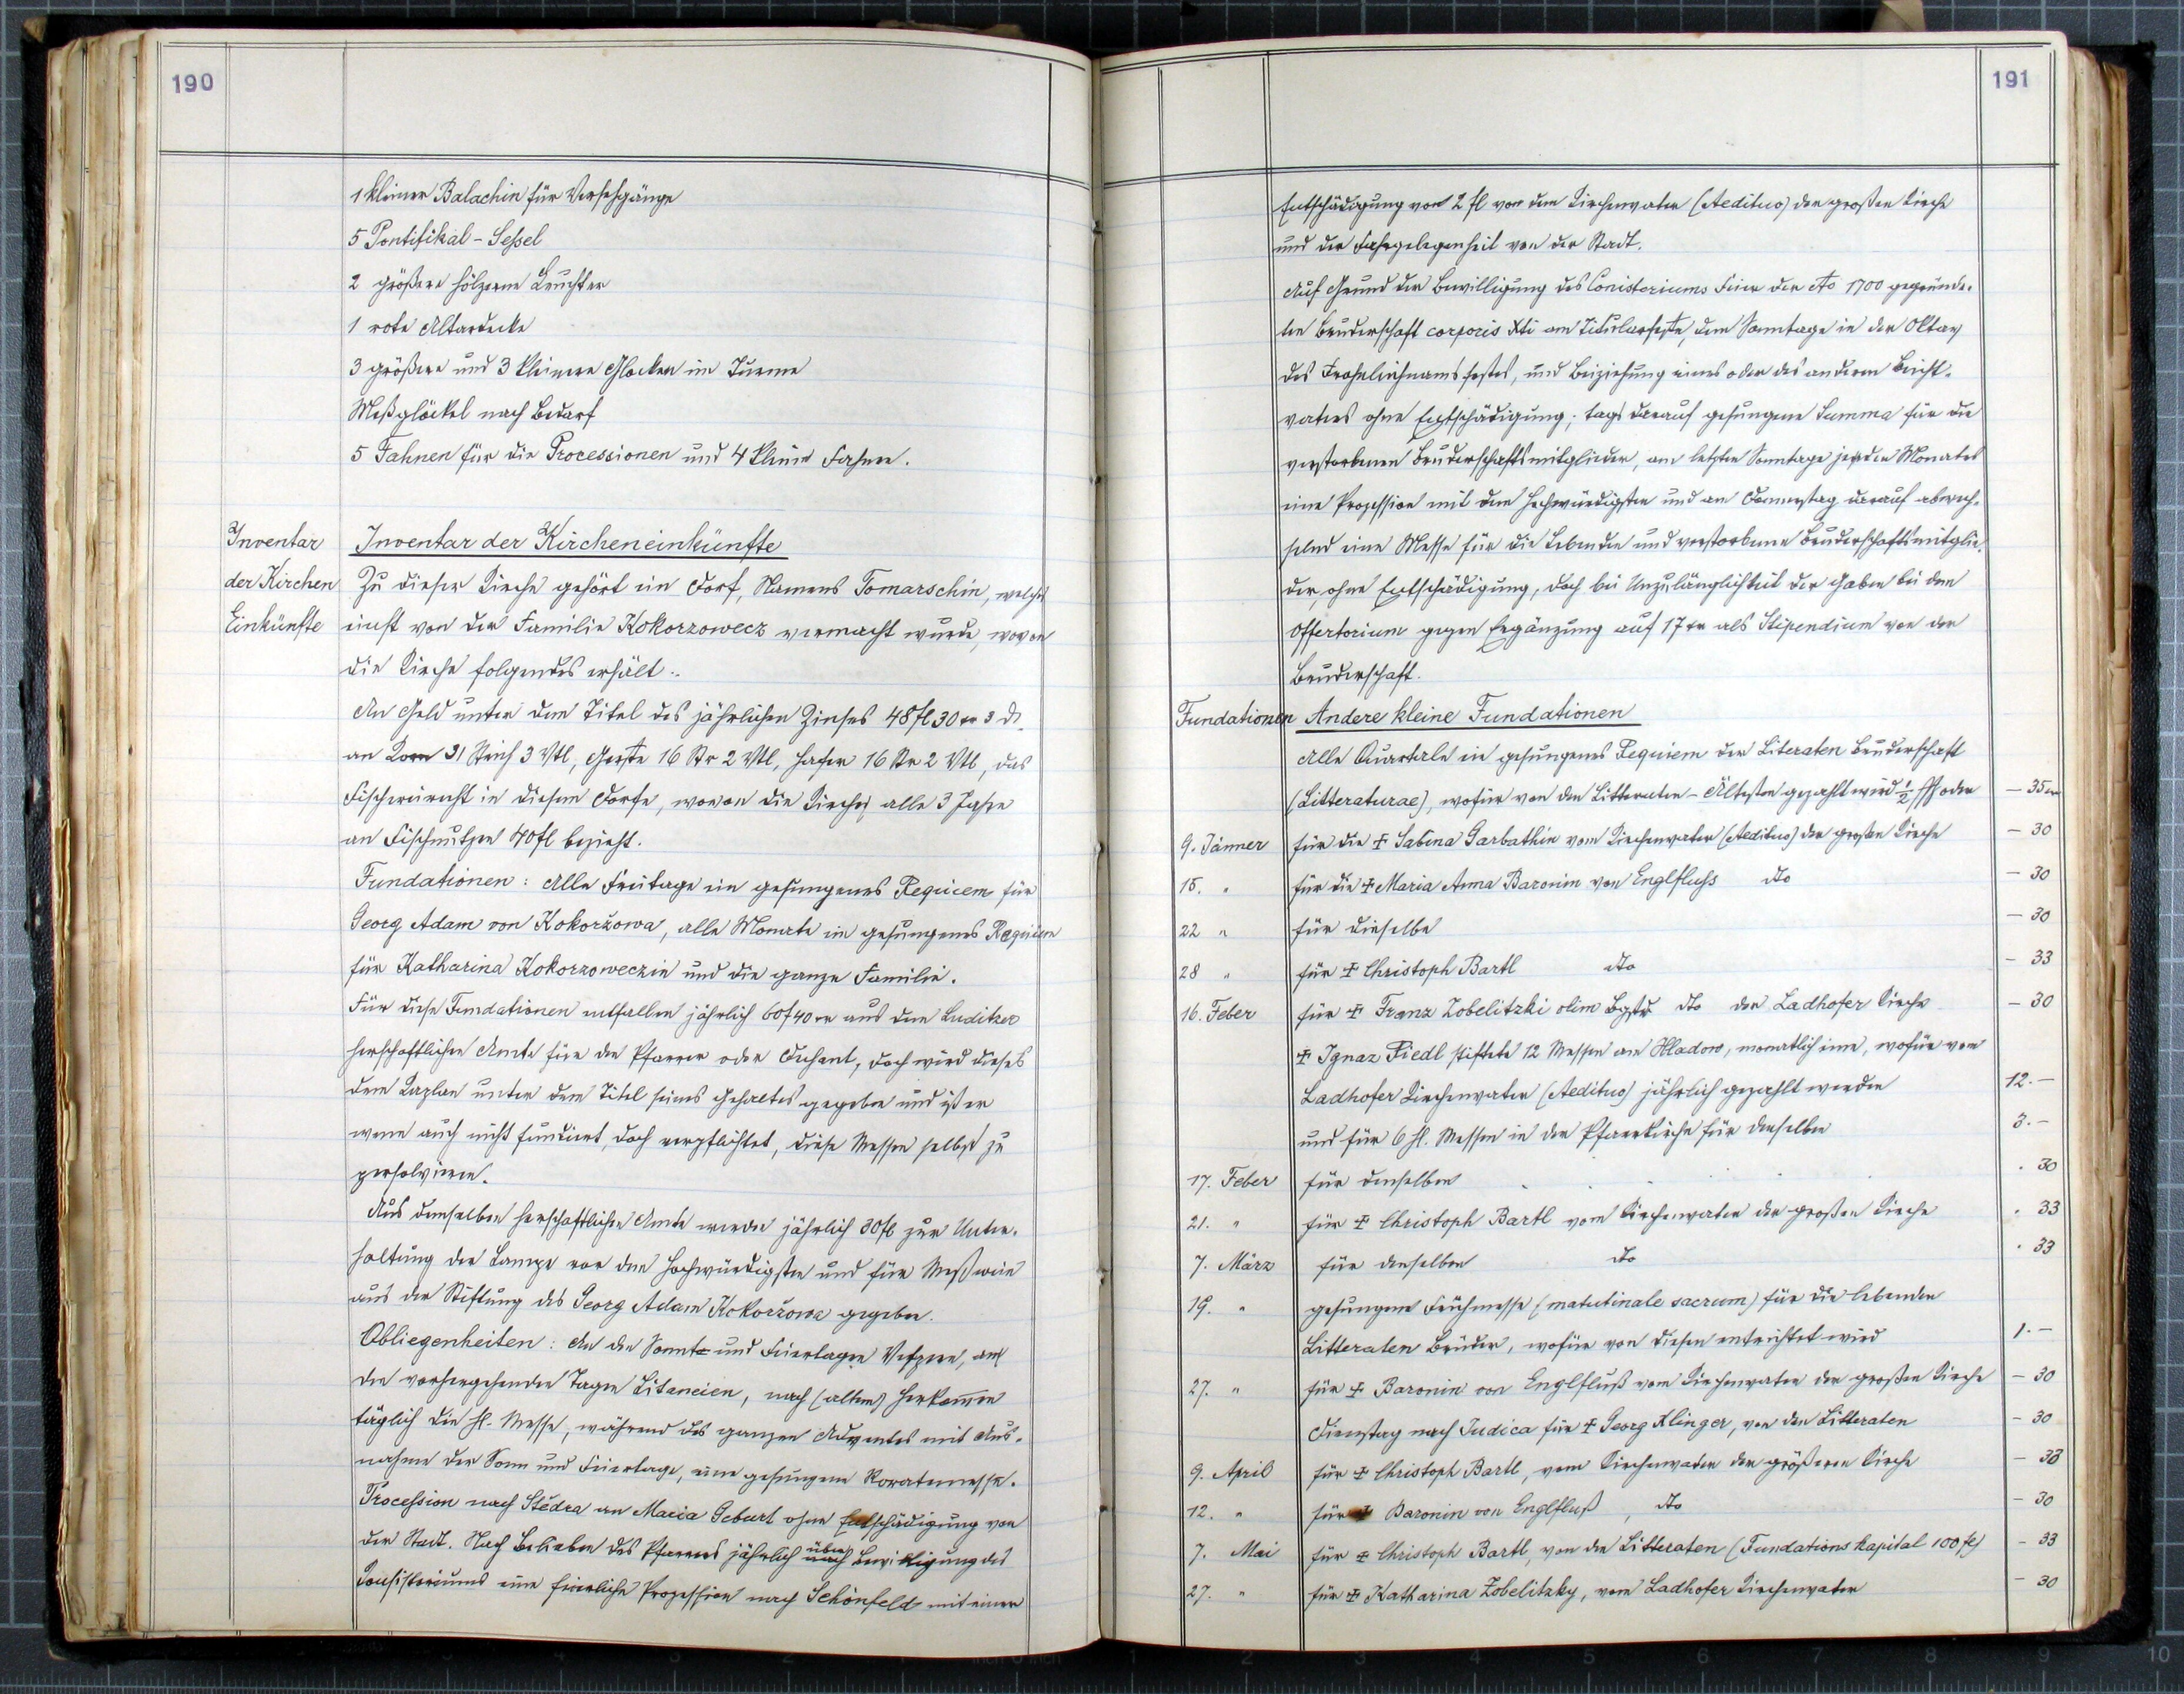 190
1 kleiner Balachin für Versehgänge
5 Pontifikal-Seßel
2 größere hölzerne Leuchter
1 rote Altardecke
3 größere und 3 kleinere Glocken im Turme
Meßglöckel nach Bedarf
5 Fahnen für die Processionen und 4 kleine Fahnen.
Inventar der Kirchen Einkünfte
Inventar der Kircheneinkünfte
Zu dieser Kirche gehört ein Dorf, Namens Tomarschin, welches
einst von der Familie Kokorzowecz vermacht wurde, wovon
die Kirche folgendes erhält:
An Geld unter dem Titel des jährlichen Zinses 48 fl 30 kr 3 d.
an Korn 31 Strich 3 Vtl, Gerste 16 Str 2 Vtl, Hafer 16 Str 2 Vtl, das
Fischereirecht in diesem Dorfe, wovon die Kirche alle 3 Jahre
an Fischnutzen 40 fl bezieht.
Fundationen: Alle Freitage ein gesungenes Requiem für
Georg Adam von Kokoržowa, alle Monate ein gesungenes Requiem
für Katharina Kokorzoweczin und die ganze Familie.
Für diese Fundationen entfallen jährlich 60 f 40 kr aus dem Luditzer
herschaftlichen Amte für den Pfarrer oder Dechant, doch wird dieses
dem Kaplan unter dem Titel seines Gehaltes gegeben und ist er
wenn auch nicht fundiert, doch verpflichtet, diese Messen selbst zu
persolvieren.
Aus demselben herschaftlichen Amte werden jährlich 30 fl zur Unter-
haltung der Lampe vor dem Hochwürdigsten und für Meßwein
aus der Stiftung des Georg Adam Kokoržowa gegeben.
Obliegenheiten: An den Sonnta und Feiertagen Vespern, am
den vorhergehenden Tagen Litaneien, nach (altem) Herkommen
täglich die hl. Messe, während des ganzen Adventes mit Aus-
nahme der Sonn und Feiertage, eine gesungene Roratemesse.
Procession nach Stědra an Maria Geburt ohne Entschädigung von
der Stadt. Nach Belieben des Pfarrers jährlich nach über Bewilligung des
Consistoriums eine feierliche Prozession nach Schönfeld mit einer
191
Entschädigung von 2 fl von dem Kirchenvater (Aedituo) der großen Kirche
und der Fahrgelegenheit von der Stadt.
Auf Grund der Bewilligung des Conistoriums Feier der Ao 1700 gegründe-
ten Bruderschaft corporis Xti am Titularfeste, dem Sonntage in der Oktav
des Frohnleichnamsfestes, und Beiziehung eines oder des anderen Beicht-
vaters ohne Entschädigung; tags darauf gesungene Summa für die
verstorbenen Bruderschaftsmitglieder, am letzten Sonntage jeden Monates
eine Prozession mit dem Hochwürdigsten und am Donnerstag darauf abwech-
selnd eine Messe für die Lebenden und verstorbenen Bruderschaftsmitglie-
der, ohne Entschädigung, doch bei Unzulänglichkeit der Gaben bei dem
Offertorium gegen Ergänzung auf 17 kr als Stipendium von der
Bruderschaft.
Fundationen Andere kleine Fundationen
Alle Quartale ein gesungenes Requiem der Literaten Bruderschaft
(Litteraturae), wofür von den Litteraten-Ältesten gezahlt wird ½ oder — 35 kr
9. Jänner für die ☩ Sabina Garbathin vom Kirchenvater (Aedituo) der großen Kirche — 30
15. " für die ☩ Maria Anna Baronin von Englfluss dto — 30
22 " für dieselbe — 30
28 " für ☩ Christoph Bartl dto — 33
16. Feber für ☩ Franz Zobelitzki olim dto der Ladhofer Kirche — 30
☩ Ignaz Fiedl stiftete 12 Messen am Hladow, monatlich eine, wofür vom
Ladhofer Kirchenvater (Aedituo) jährlich gezahlt werden 12.—
und für 6 hl. Messen in der Pfarrkirche für denselben 3.—
17. Feber für denselben . 30
21. " für ☩ Christoph Bartl vom Kirchenvater der großen Kirche . 33
7. März für denselben dto . 33
19. " gesungene Frühmesse (matutinale sacrum) für die lebenden
Litteraten Brüder, wofür von diesen entrichtet wird 1.—
27. " für ☩ Baronin von Englfluß vom Kirchenvater der großen Kirche — 30
Dienstag nach Judica für ☩ Georg Klinger, von den Litteraten — 30
9. April für ☩ Christoph Bartl, vom Kirchenvater der größeren Kirche — 33
12. " für ☩ Baronin von Englfluß, dto — 30
7. Mai für ☩ Christoph Bartl, von den Litteraten (Fundations kapital 100 fl) — 33
27. " für ☩ Katharina Zobelitzky, vom Ladhofer Kirchenvater — 30